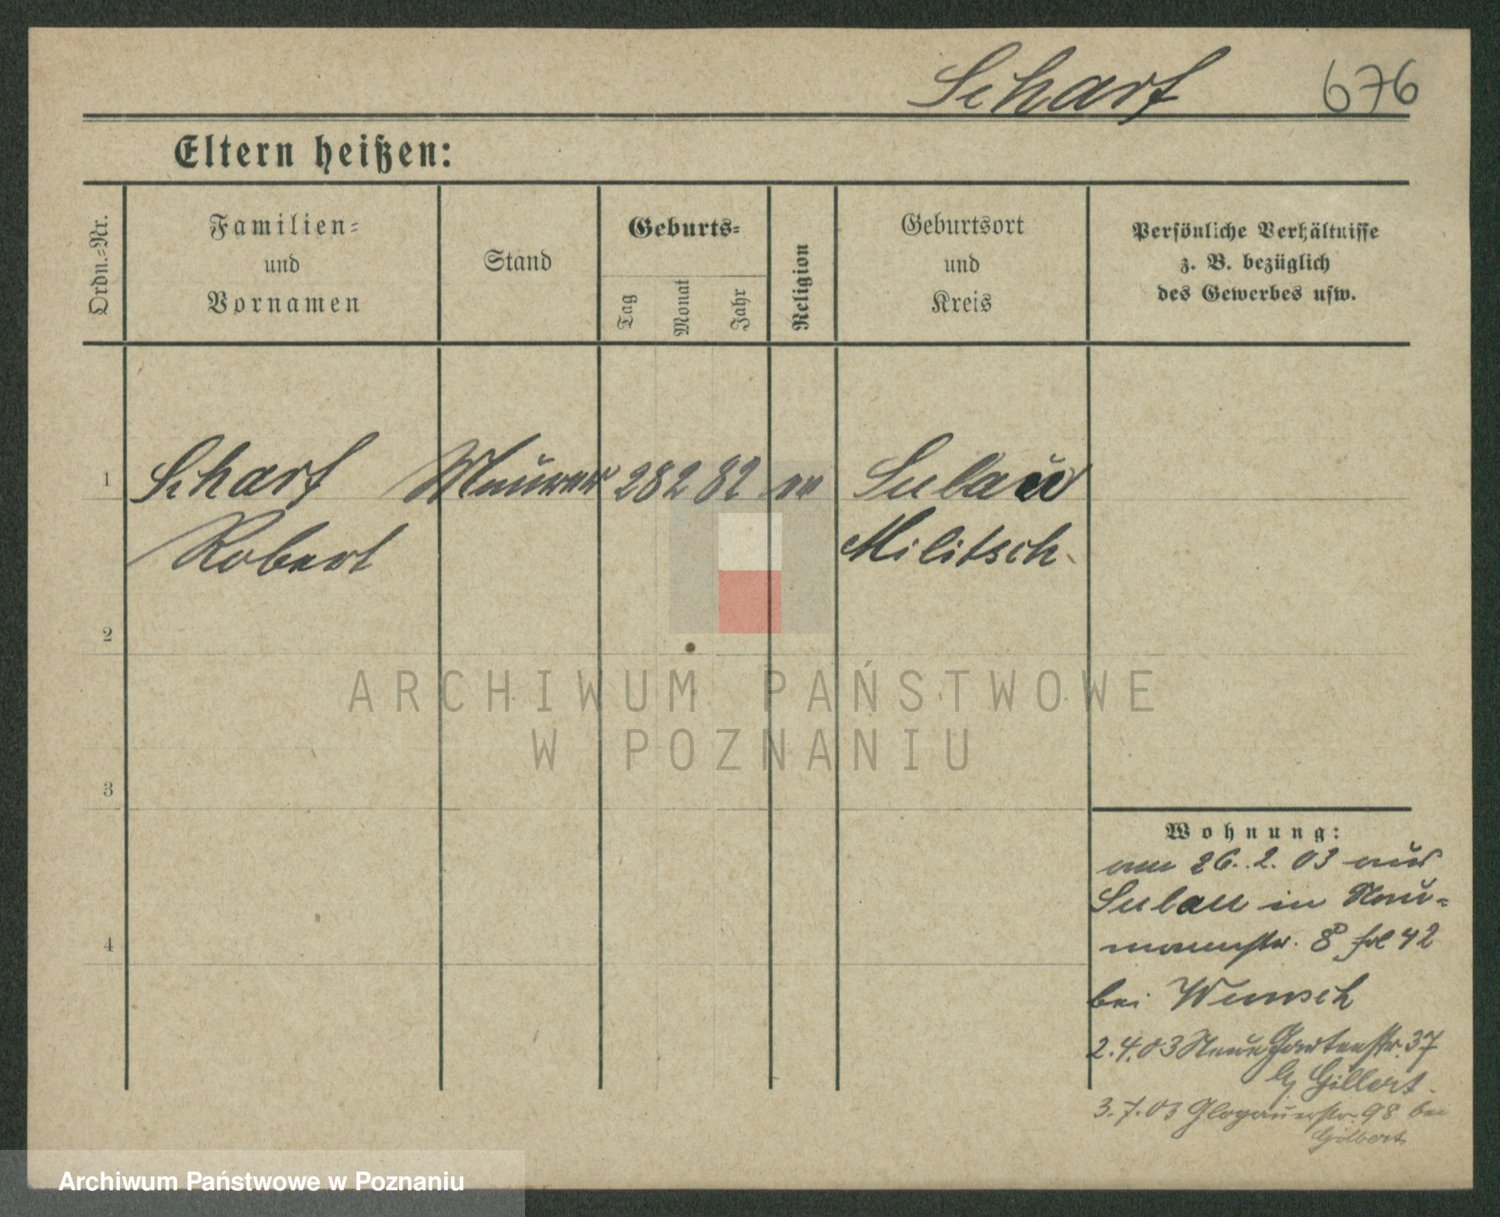 Scharf 676
Eltern heißen:
Ordn.-Nr.
Familien-
und
Vornamen
Stand
Geburts-
Tag
Monat
Jahr
Religion
Geburtsort
und
Kreis
Persönliche Verhältnisse
z. B. bezüglich
des Gewerbes usw.
1 Scharf Maurer 28 2 82 Sulau
Robert Militsch
2
3
4
ARCHIWUM PAŃSTWOWE
W POZNANIU
Wohnung:
am 26. 2. 03 aus
Sulau in Nau-
mannstr. 8
bei Wunsch
2.4.03 Neue Gartenstr. 37
Gillert
3.7.03 Glogauerstr. 98 bei
Archiwum Państwowe w Poznaniu